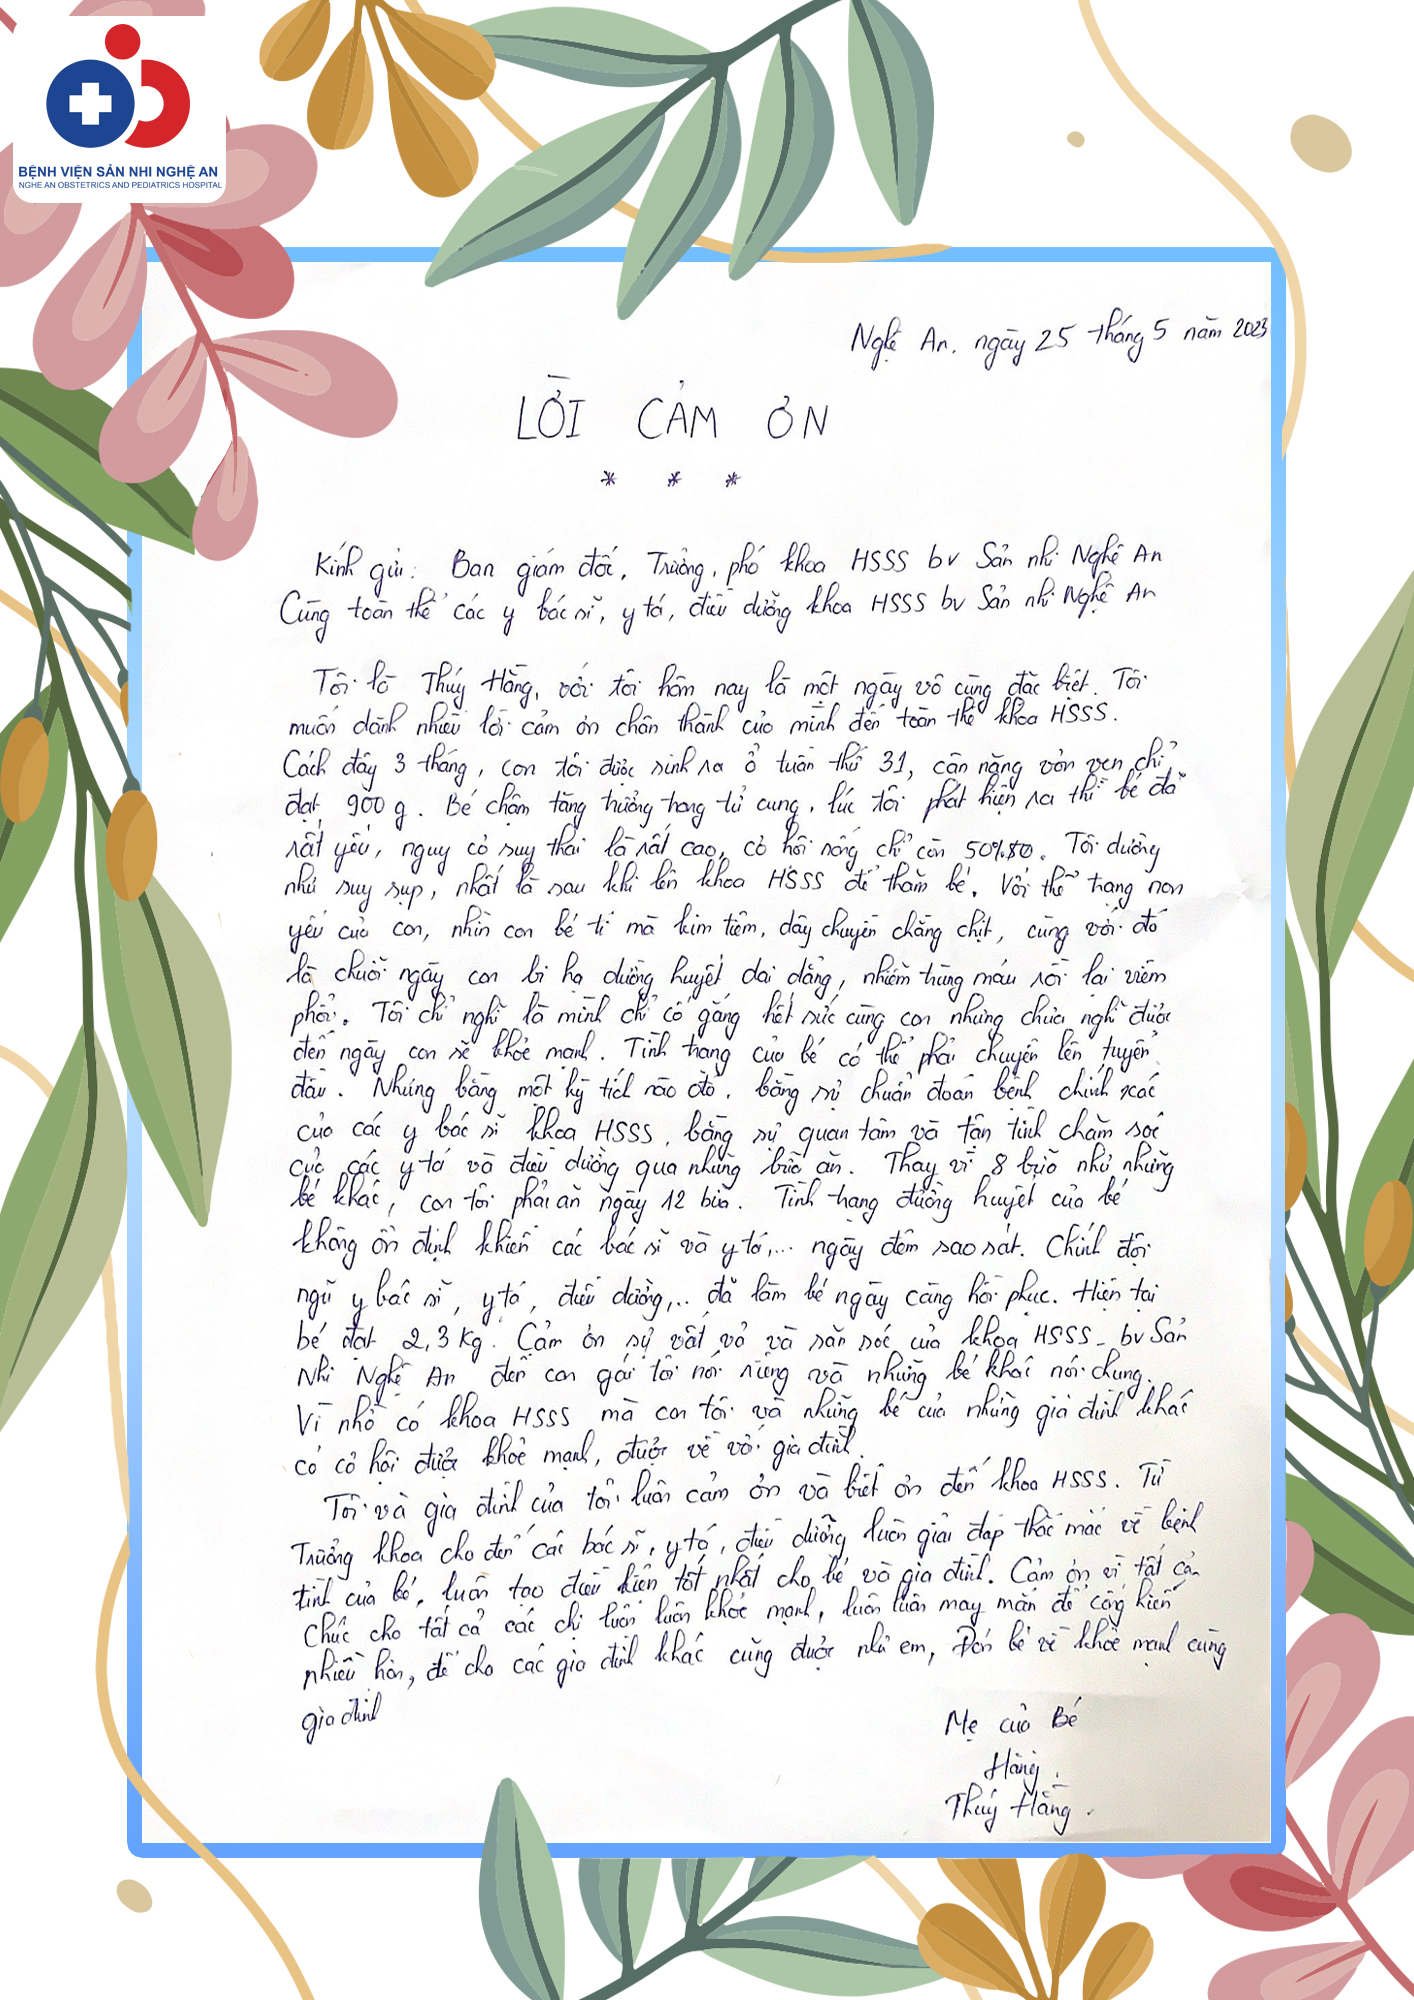 BỆNH VIỆN SẢN NHI NGHỆ AN
NGHE AN OBSTETRICS AND PEDIATRICS HOSPITAL
Nghệ An, ngày 25 tháng 5 năm 2023
LỜI CẢM ƠN
* * *
Kính gửi: Ban giám đốc, Trưởng, phó khoa HSSS bv Sản nhi Nghệ An
Cùng toàn thể các y bác sĩ, y tá, điều dưỡng khoa HSSS bv Sản nhi Nghệ An
Tôi là Thúy Hằng, với tôi hôm nay là một ngày vô cùng đặc biệt. Tôi
muốn dành nhiều lời cảm ơn chân thành của mình đến toàn thể khoa HSSS.
Cách đây 3 tháng, con tôi được sinh ra ở tuần thứ 31, cân nặng vỏn vẹn chỉ
đạt 900 g. Bé chậm tăng trưởng trong tử cung, lúc tôi phát hiện ra thì bé đã
rất yếu, nguy cơ suy thai là rất cao, cơ hội sống chỉ còn 50%50. Tôi dường
như suy sụp, nhất là sau khi lên khoa HSSS để thăm bé. Với thể trạng non
yếu của con, nhìn con bé tí mà kim tiêm, dây chuyền chằng chịt, cùng với đó
là chuỗi ngày con bị hạ đường huyết dai dẳng, nhiễm trùng máu rồi lại viêm
phổi. Tôi chỉ nghĩ là mình chỉ cố gắng hết sức cùng con nhưng chưa nghĩ được
đến ngày con sẽ khỏe mạnh. Tình trạng của bé có thể phải chuyển lên tuyến
đầu. Nhưng bằng một kỳ tích nào đó, bằng sự chuẩn đoán bệnh chính xác
của các y bác sĩ khoa HSSS, bằng sự quan tâm và tận tình chăm sóc
của các y tá và điều dưỡng qua những bữa ăn. Thay vì 8 bữa như những
bé khác, con tôi phải ăn ngày 12 bữa. Tình trạng đường huyết của bé
không ổn định khiến các bác sĩ và y tá,... ngày đêm sao sát. Chính đội
ngũ y bác sĩ, y tá, điều dưỡng,.. đã làm bé ngày càng hồi phục. Hiện tại
bé đạt 2,3 kg. Cảm ơn sự vất vả và săn sóc của khoa HSSS - bv Sản
Nhi Nghệ An đến con gái tôi nói riêng và những bé khác nói chung.
Vì nhờ có khoa HSSS mà con tôi và những bé của những gia đình khác
có cơ hội được khỏe mạnh, được về với gia đình.
Tôi và gia đình của tôi luôn cảm ơn và biết ơn đến khoa HSSS. Từ
Trưởng khoa cho đến các bác sĩ, y tá, điều dưỡng luôn giải đáp thắc mắc về bệnh
tình của bé, luôn tạo điều kiện tốt nhất cho bé và gia đình. Cảm ơn vì tất cả
Chúc cho tất cả các chị luôn luôn khỏe mạnh, luôn luôn may mắn để cống hiến
nhiều hơn, để cho các gia đình khác cũng được như em, Đón bé về khỏe mạnh cùng
gia đình
Mẹ của Bé
Hằng
Thúy Hằng.